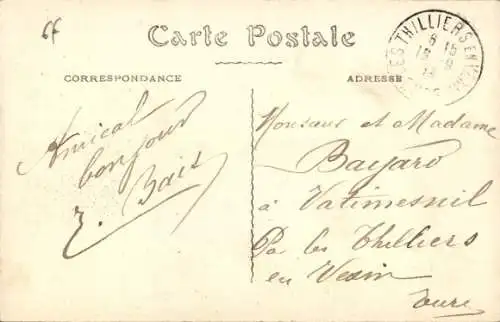 Carte Postale
CORRESPONDANCE
ADRESSE
LES THILLIERS EN VEXIN
Amical
bonjour
Bais
Monsieur et Madame
Bayard
à Vatimesnil
Par les Thilliers
en Vexin
Eure